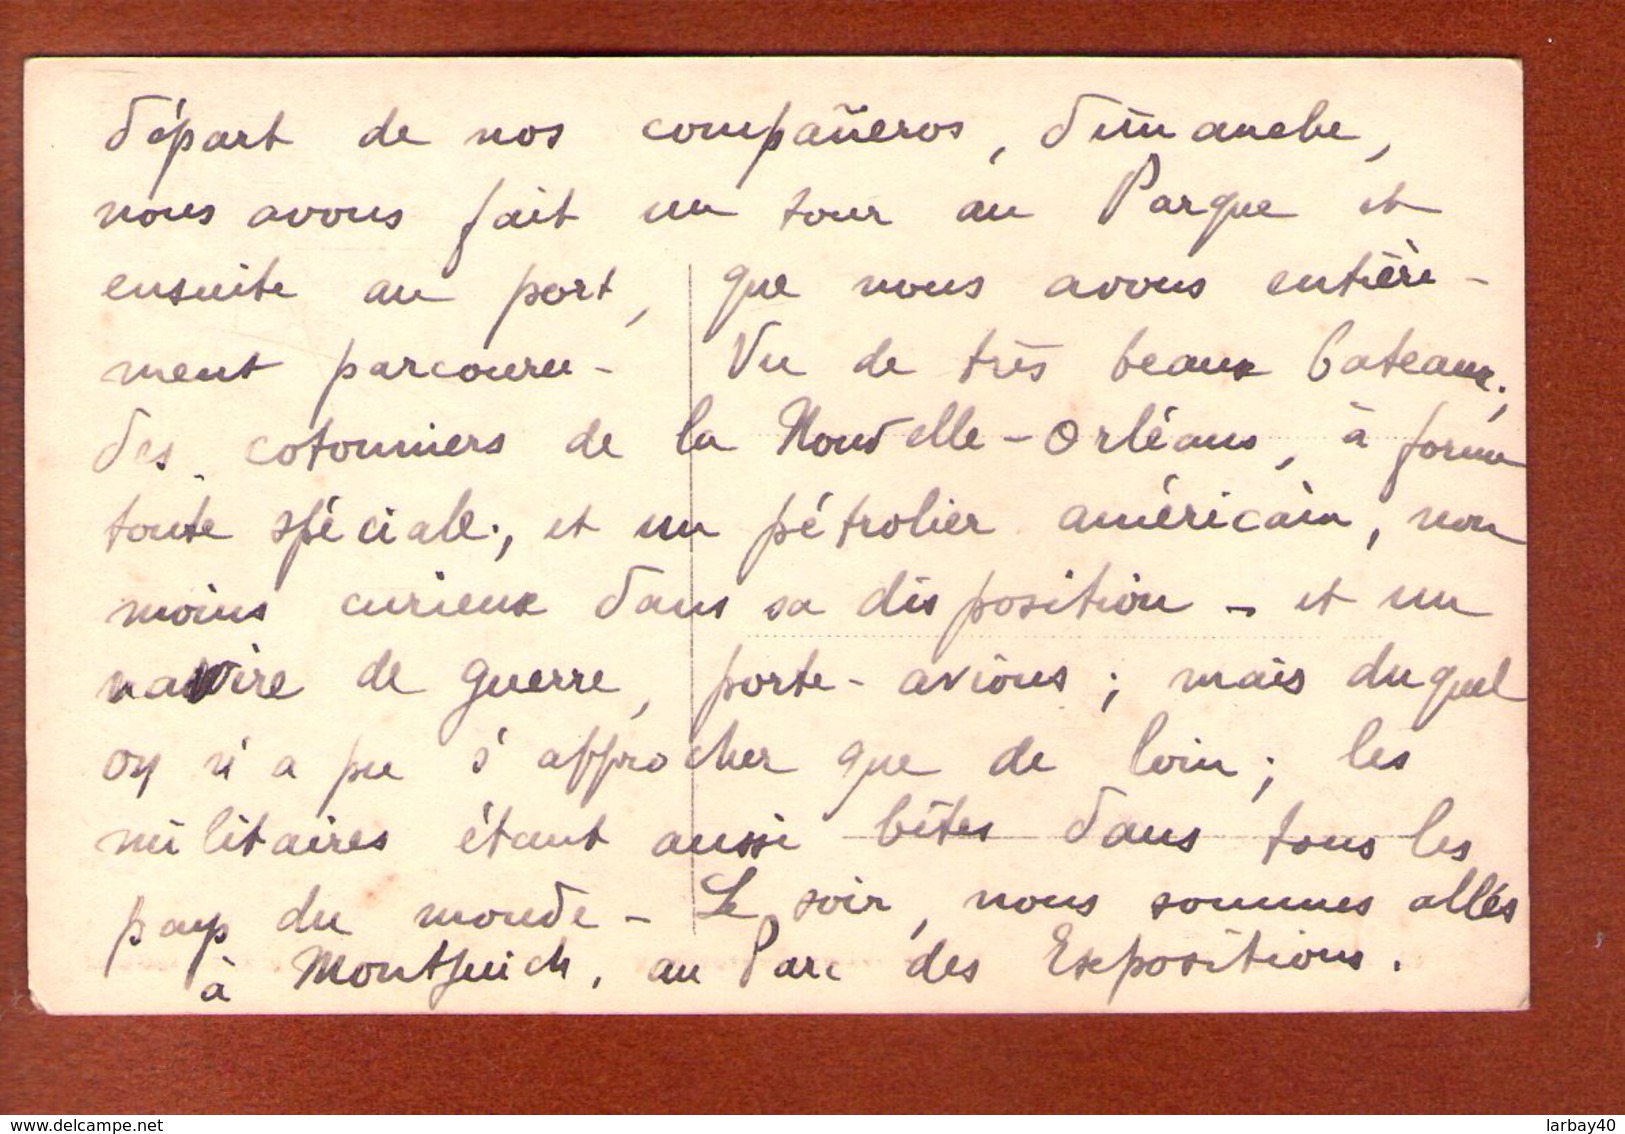 départ de nos compañeros, dimanche,
nous avons fait un tour au Parque et
ensuite au port, que nous avons entière-
ment parcouru - Vu de très beaux bateaux;
des cotonniers de la Nouvelle-Orléans, à forme
toute spéciale; et un pétrolier américain, non
moins curieux dans sa disposition - et un
navire de guerre, porte-avions; mais duquel
on n'a pu s'approcher que de loin; les
militaires étant aussi bêtes dans tous les
pays du monde - Le soir, nous sommes allés
à Montjuich, au Parc des Expositions.
www.delcampe.net
larbay40